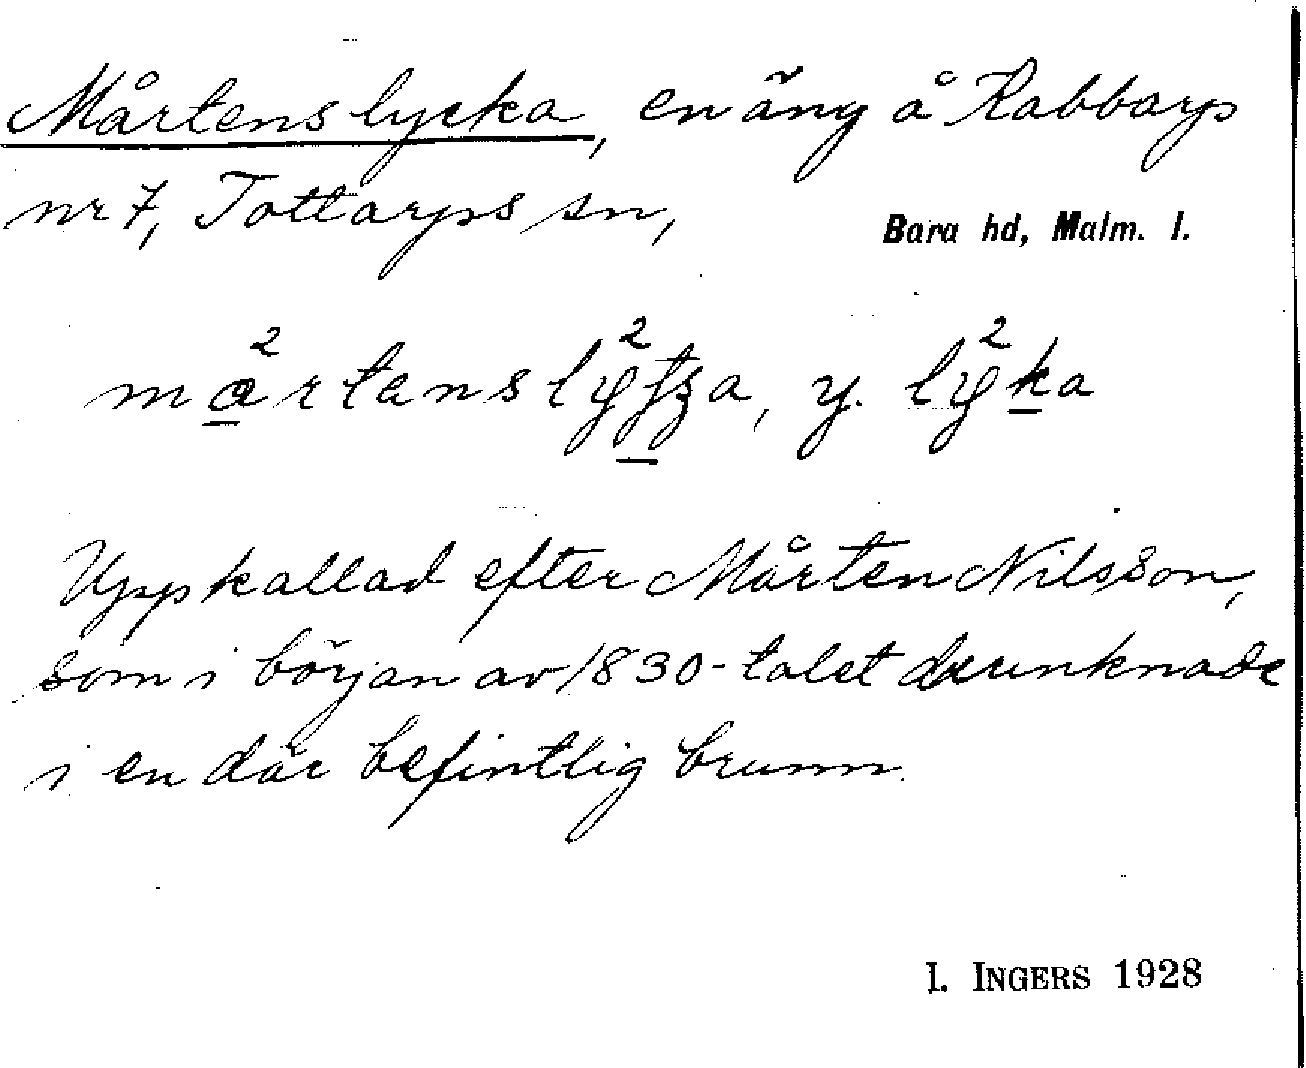 Mårtenslycka, en äng å Kabbarp
nr 7, Tottarps sn,
Bara hd, Malm. l.
Uppkallad efter Mårten Nilsson,
som i början av 1830-talet drunknade
i en där befintlig brunn.
I. INGERS 1928